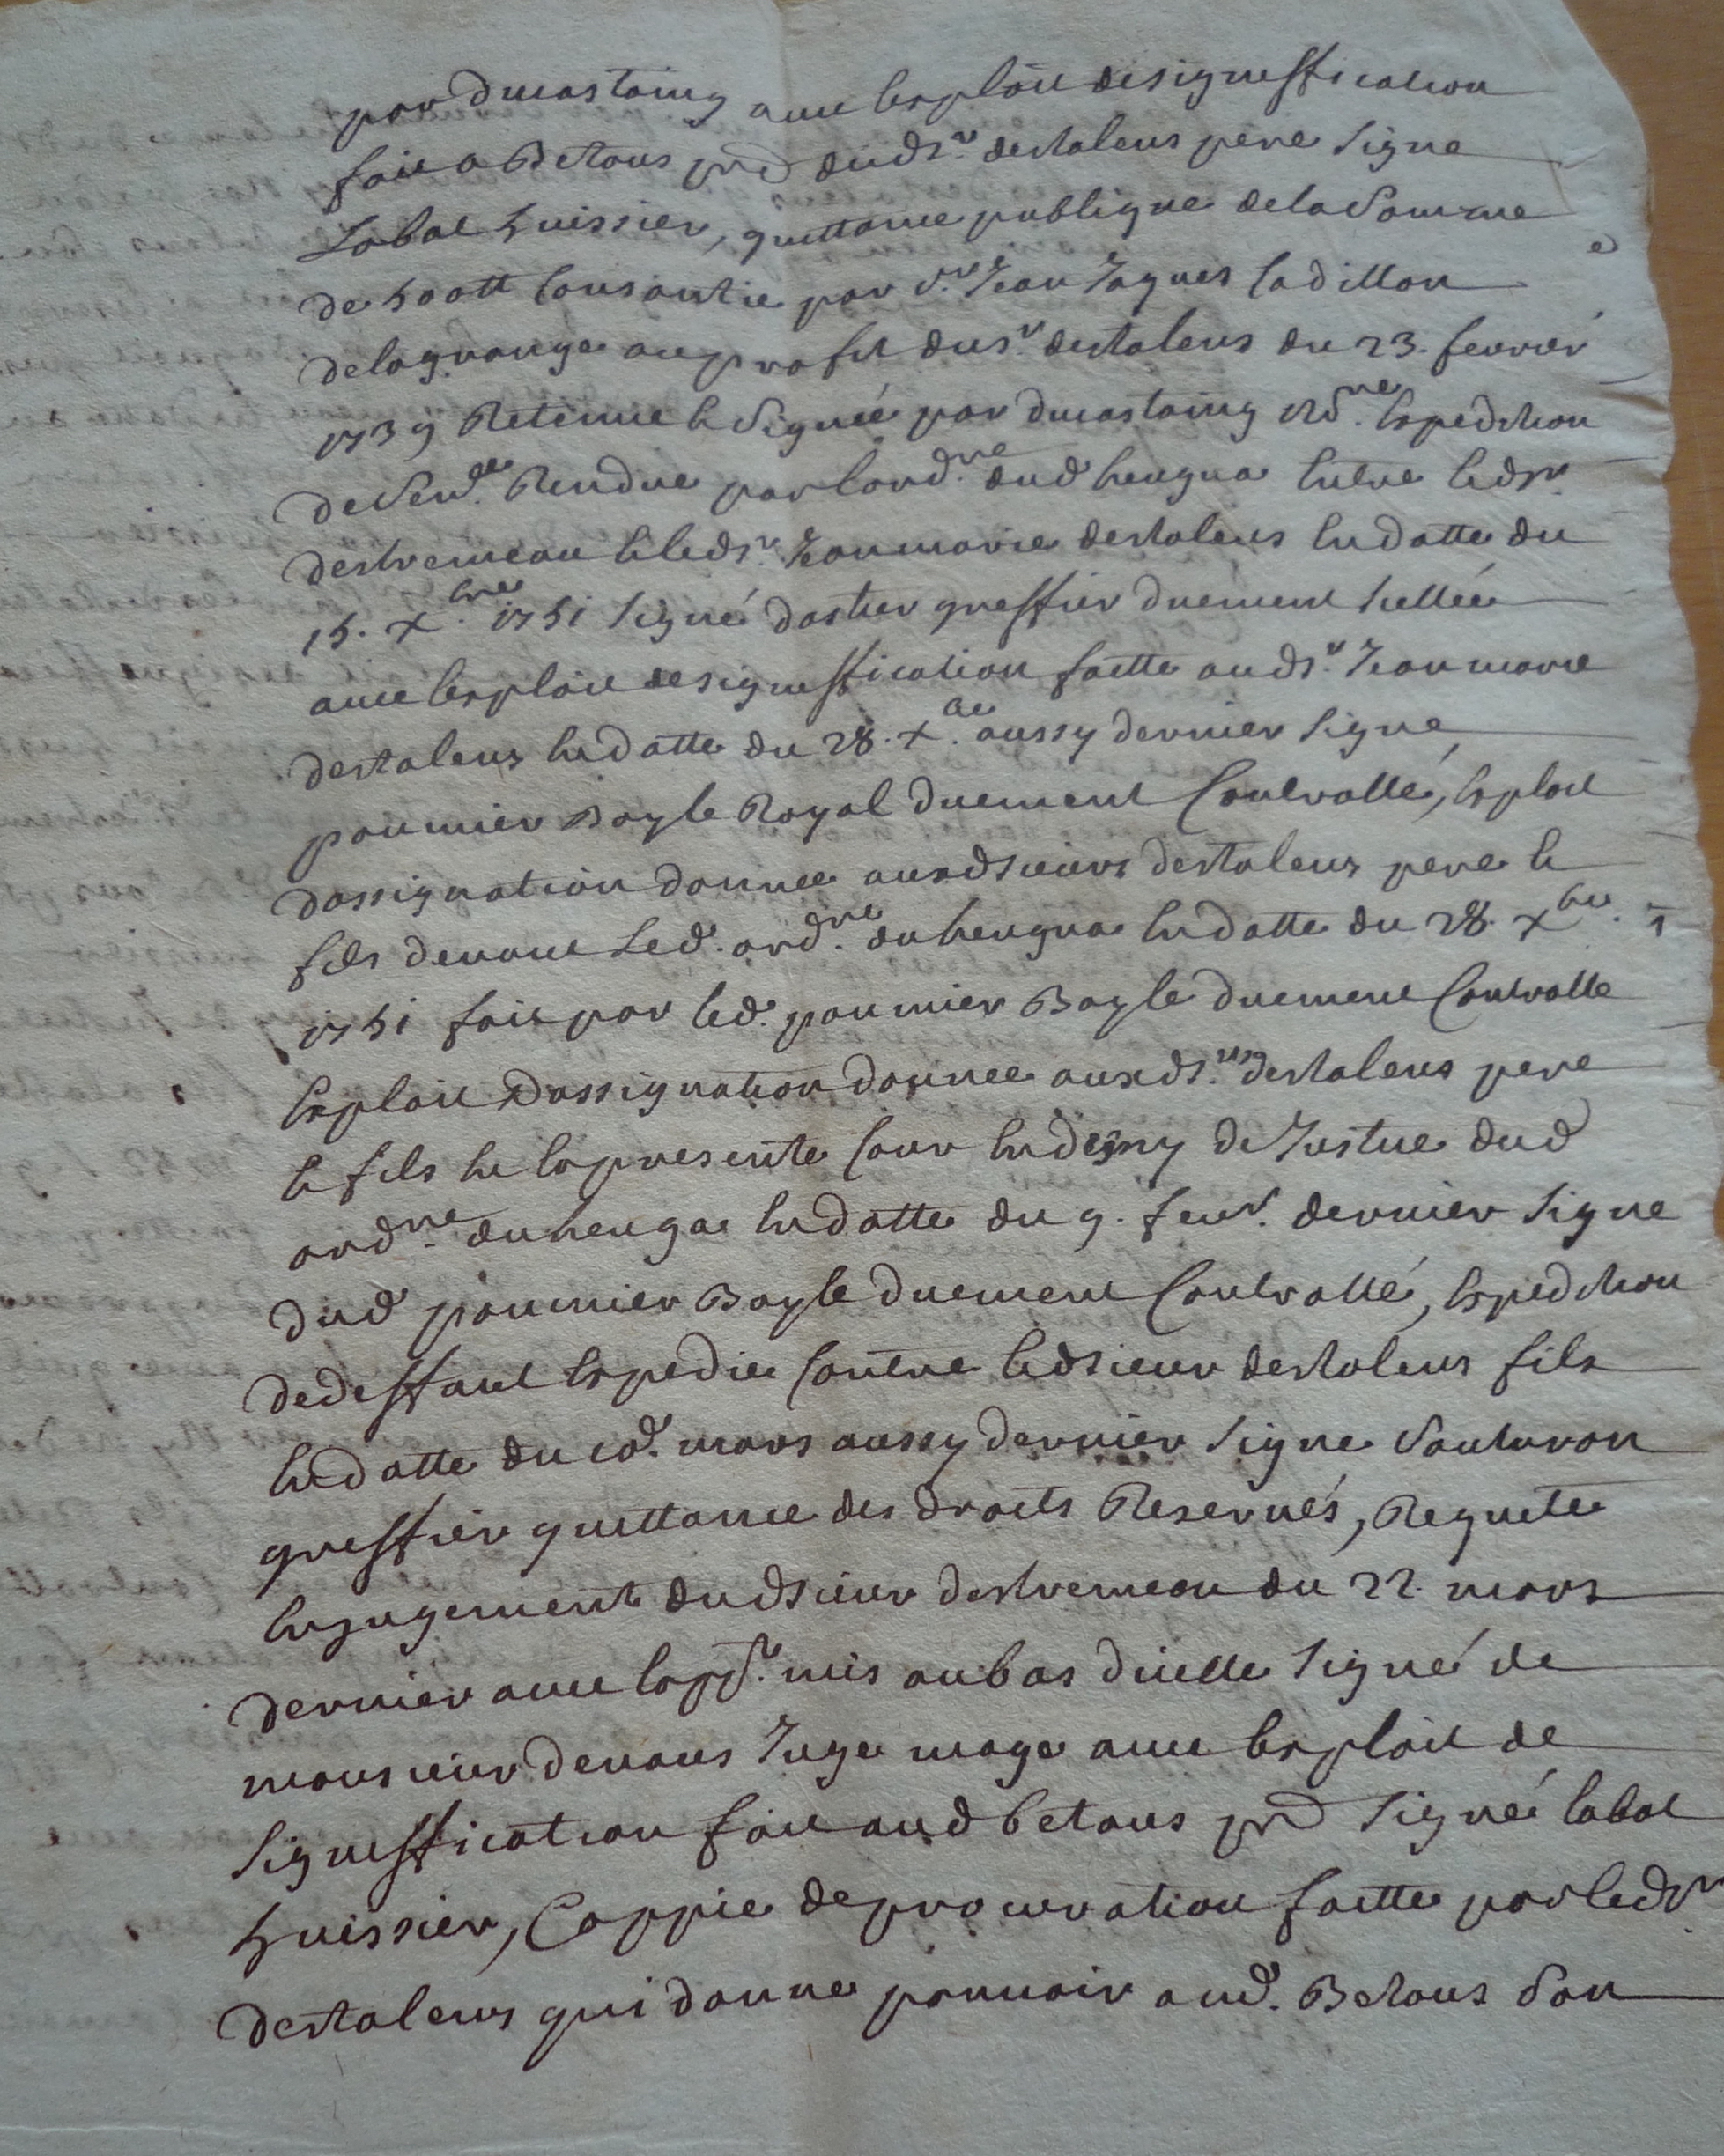 par ducastaing avec lexploit de signiffication
fait a Betous prd dudsr. destalens pere signe
Labat huissier, quittance publique de la somme
de 500tt consantie par sr. Jean Jaques Cadillon
delagrange au profit dusr. destalens du 23. fevrier
1739 Retenue et signée par ducastaing nore. Expedition
de sence. Rendue par lordre. dud heugua entre ledsr.
destremeau et ledsr. Jean marie destalens en datte du
15. Xbre. 1751 signé dastier greffier duement scellée
avec lexploit de signiffication faitte audsr. Jean marie
destalens en datte du 28. Xbe. aussy dernier signe
poumier Bayle Royal duement Controllé, exploit
dassignation donnee auxdsieurs destalens pere et
fils devant led. ordre. du heugua en datte du 28. Xbre.
1751 fait par led. poumier Bayle duement Controlle
Exploit dassignation donnee auxdsrs. destalens pere
et fils en la presente Cour en deny de Justice dud
ordre. du heuga en datte du 9. fevr. dernier signe
dud poumier Bayle duement Controllé, Expedition
de deffaut expedie contre ledsieur destalens fils
en datte du 10e. mars aussy dernier signe Souturon
greffier quittance des droits Reservés, Requete
en jugement dudsieur destremeau du 22. mars
dernier avec lapp. mis au bas dicelle signé de
monsieur devaus Juge mage avec exploit de
signiffication fait aud betous prd signé labat
huissier, Coppie de procuration faitte par ledsr
destalens qui donne pouvoir aud. Betous son